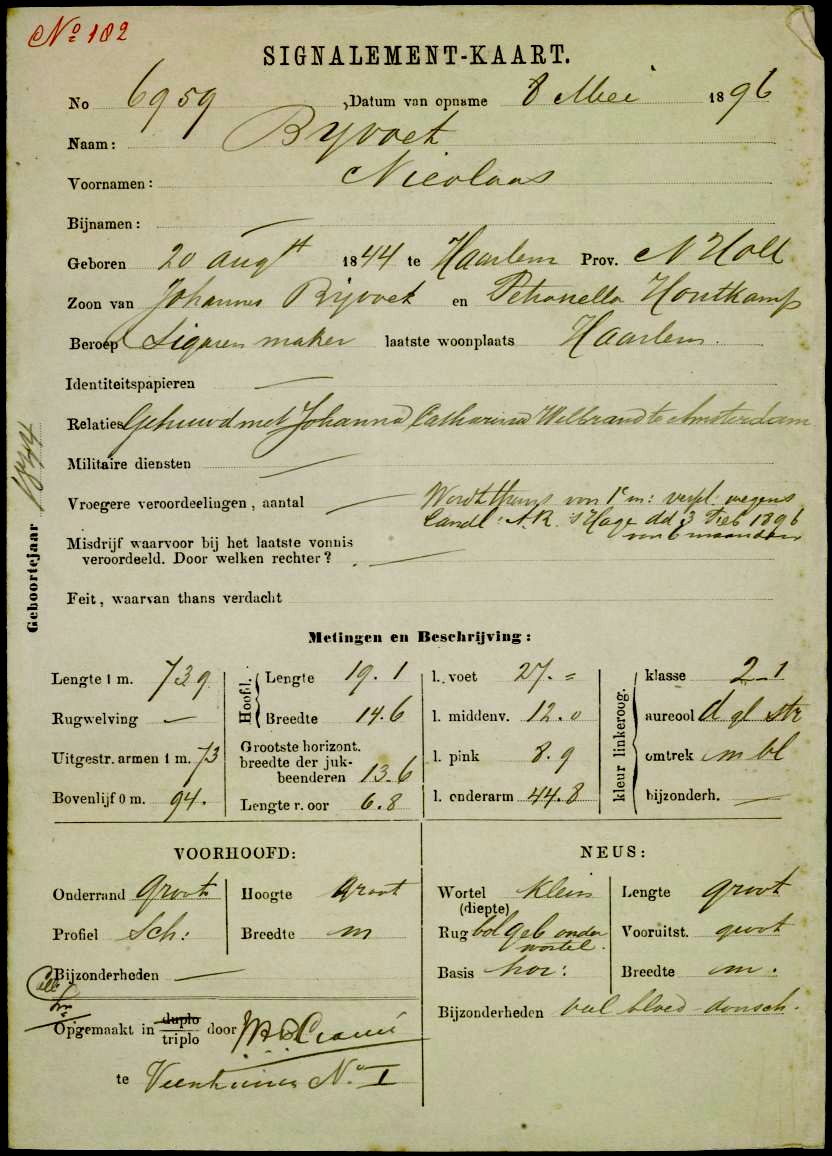 No 182
SIGNALEMENT-KAART.
No 6959 Datum van opname 8 Mei 1896
Naam: Byvoet
Voornamen: Nicolaas
Bijnamen: —
Geboren 20 augtt 1844 te Haarlem Prov. N Holl
Zoon van Johannes Bijvoet en Petronella Houtkamp
Beroep Sigaren maker laatste woonplaats Haarlem.
Identiteitspapieren —
Relaties Gehuwd met Johanna Catharina Welbrand te Amsterdam
Militaire diensten —
Vroegere veroordeelingen, aantal — Wordt thans voor 1e m: verpl. wegens
Landl: A.R. 'sHage dd 3 Feb 1896
van 6 maanden
Misdrijf waarvoor bij het laatste vonnis
veroordeeld. Door welken rechter? —
Feit, waarvan thans verdacht
Geboortejaar 1844
Metingen en Beschrijving:
Lengte 1 m. 739
Rugwelving —
Uitgestr. armen 1 m. 73
Bovenlijf 0 m. 94.
Hoofd.
Lengte 19.1
Breedte 14.6
Grootste horizont.
breedte der juk-
beenderen 13.6
Lengte r. oor 6.8
l. voet 27.=
l. middenv. 12.0
l. pink 8.9
l. onderarm 44.8
kleur linkeroog.
klasse 2-1
aureool d gl str
omtrek m bl
bijzonderh. —
VOORHOOFD:
Onderrand Groot
Hoogte groot
Profiel Sch:
Breedte m
Bijzonderheden —
Opgemaakt in duplo
triplo door
te Veenhuizen No I
NEUS:
Wortel klein
(diepte)
Lengte groot
Rug bol geb onder
wortel.
Vooruitst. groot
Basis hor:
Breedte m.
Bijzonderheden vel bloed doorsch.